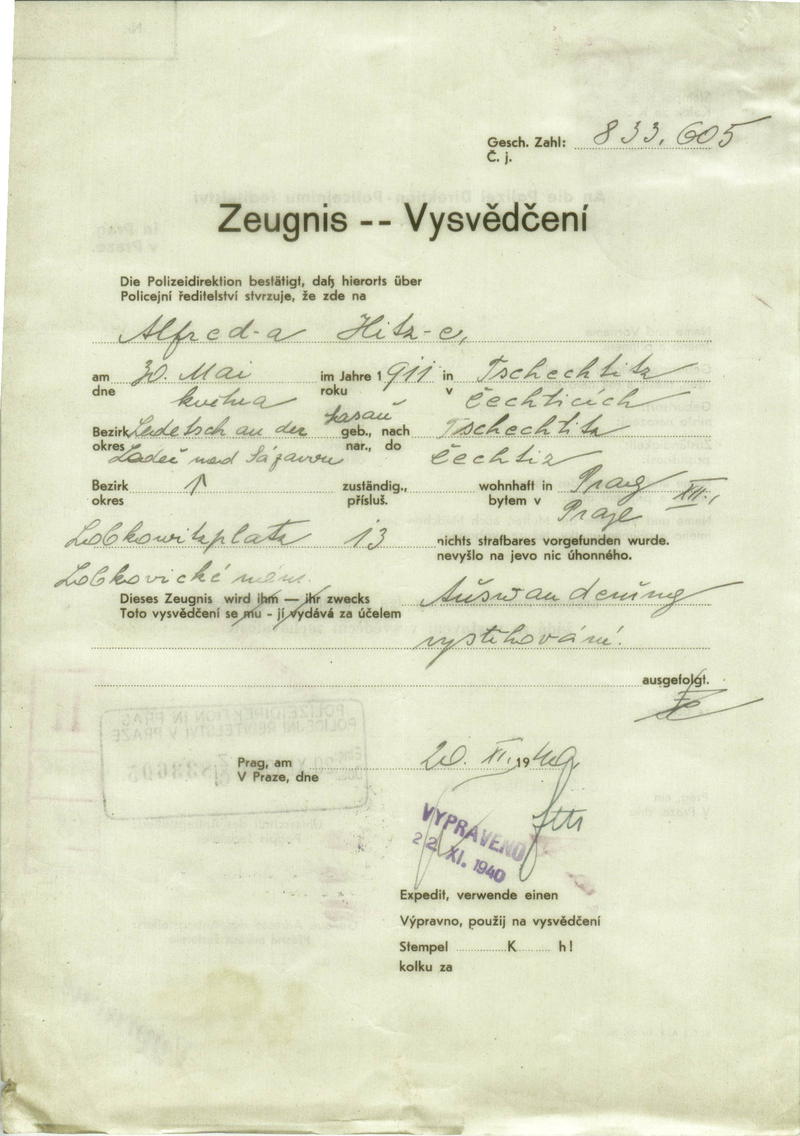 Gesch. Zahl: 833.605
Č. j.
Zeugnis -- Vysvědčení
Die Polizeidirektion bestätigt, daß hierorts über
Policejní ředitelství stvrzuje, že zde na
Alfred-a Hitz-e,
am 30. Mai im Jahre 1911 in Tschechtitz
dne května roku v Čechticích
Bezirk Ledetsch an der Sasau geb., nach Tschechtitz
okres Ledeč nad Sázavou nar., do Čechtiz
Bezirk zuständig., wohnhaft in Prag XII.,
okres přísluš. bytem v Praze
Lobkowitzplatz 13 nichts strafbares vorgefunden wurde.
nevyšlo na jevo nic úhonného.
Lobkovické nám.
Dieses Zeugnis wird ihm — ihr zwecks Auswanderung
Toto vysvědčení se mu - jí vydává za účelem
vystěhování.
ausgefolgt.
Prag, am 20. XI. 1940
V Praze, dne
VYPRAVENO
22. XI. 1940
Expedit, verwende einen
Výpravno, použij na vysvědčení
Stempel K h!
kolku za